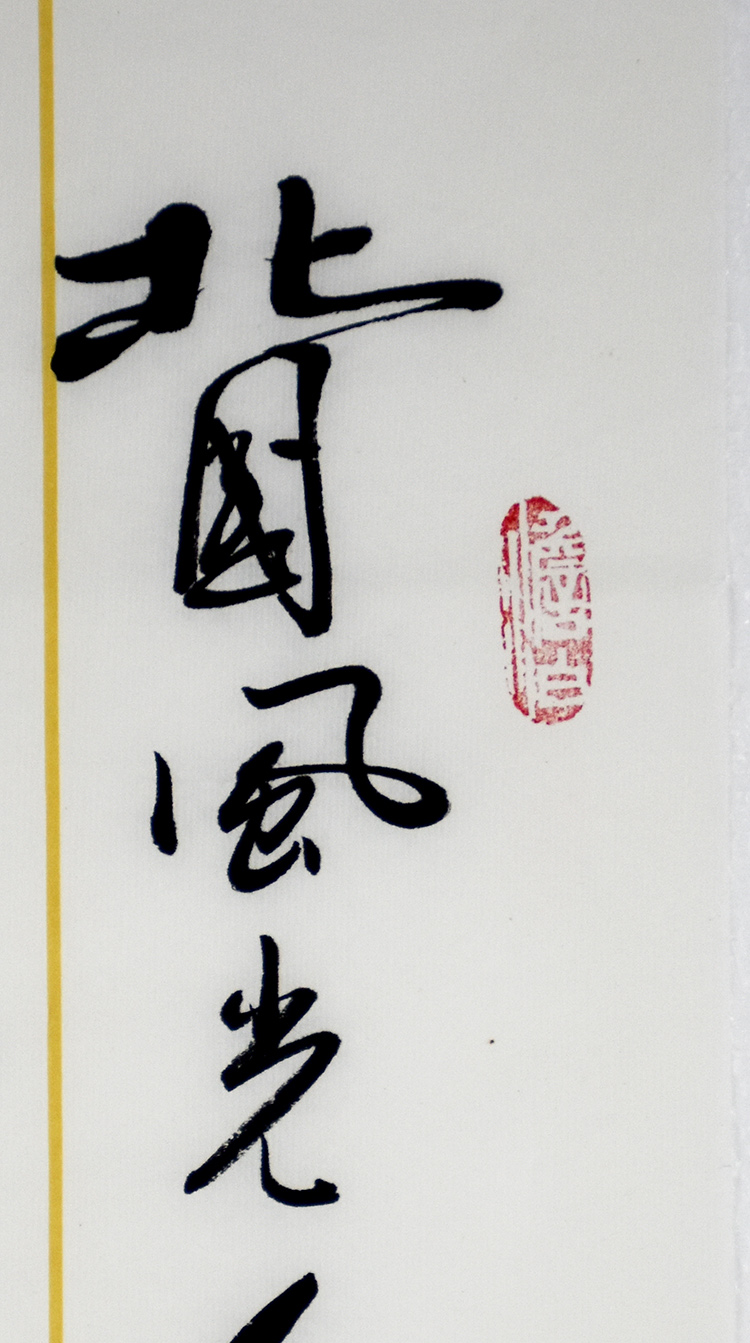 北國風光